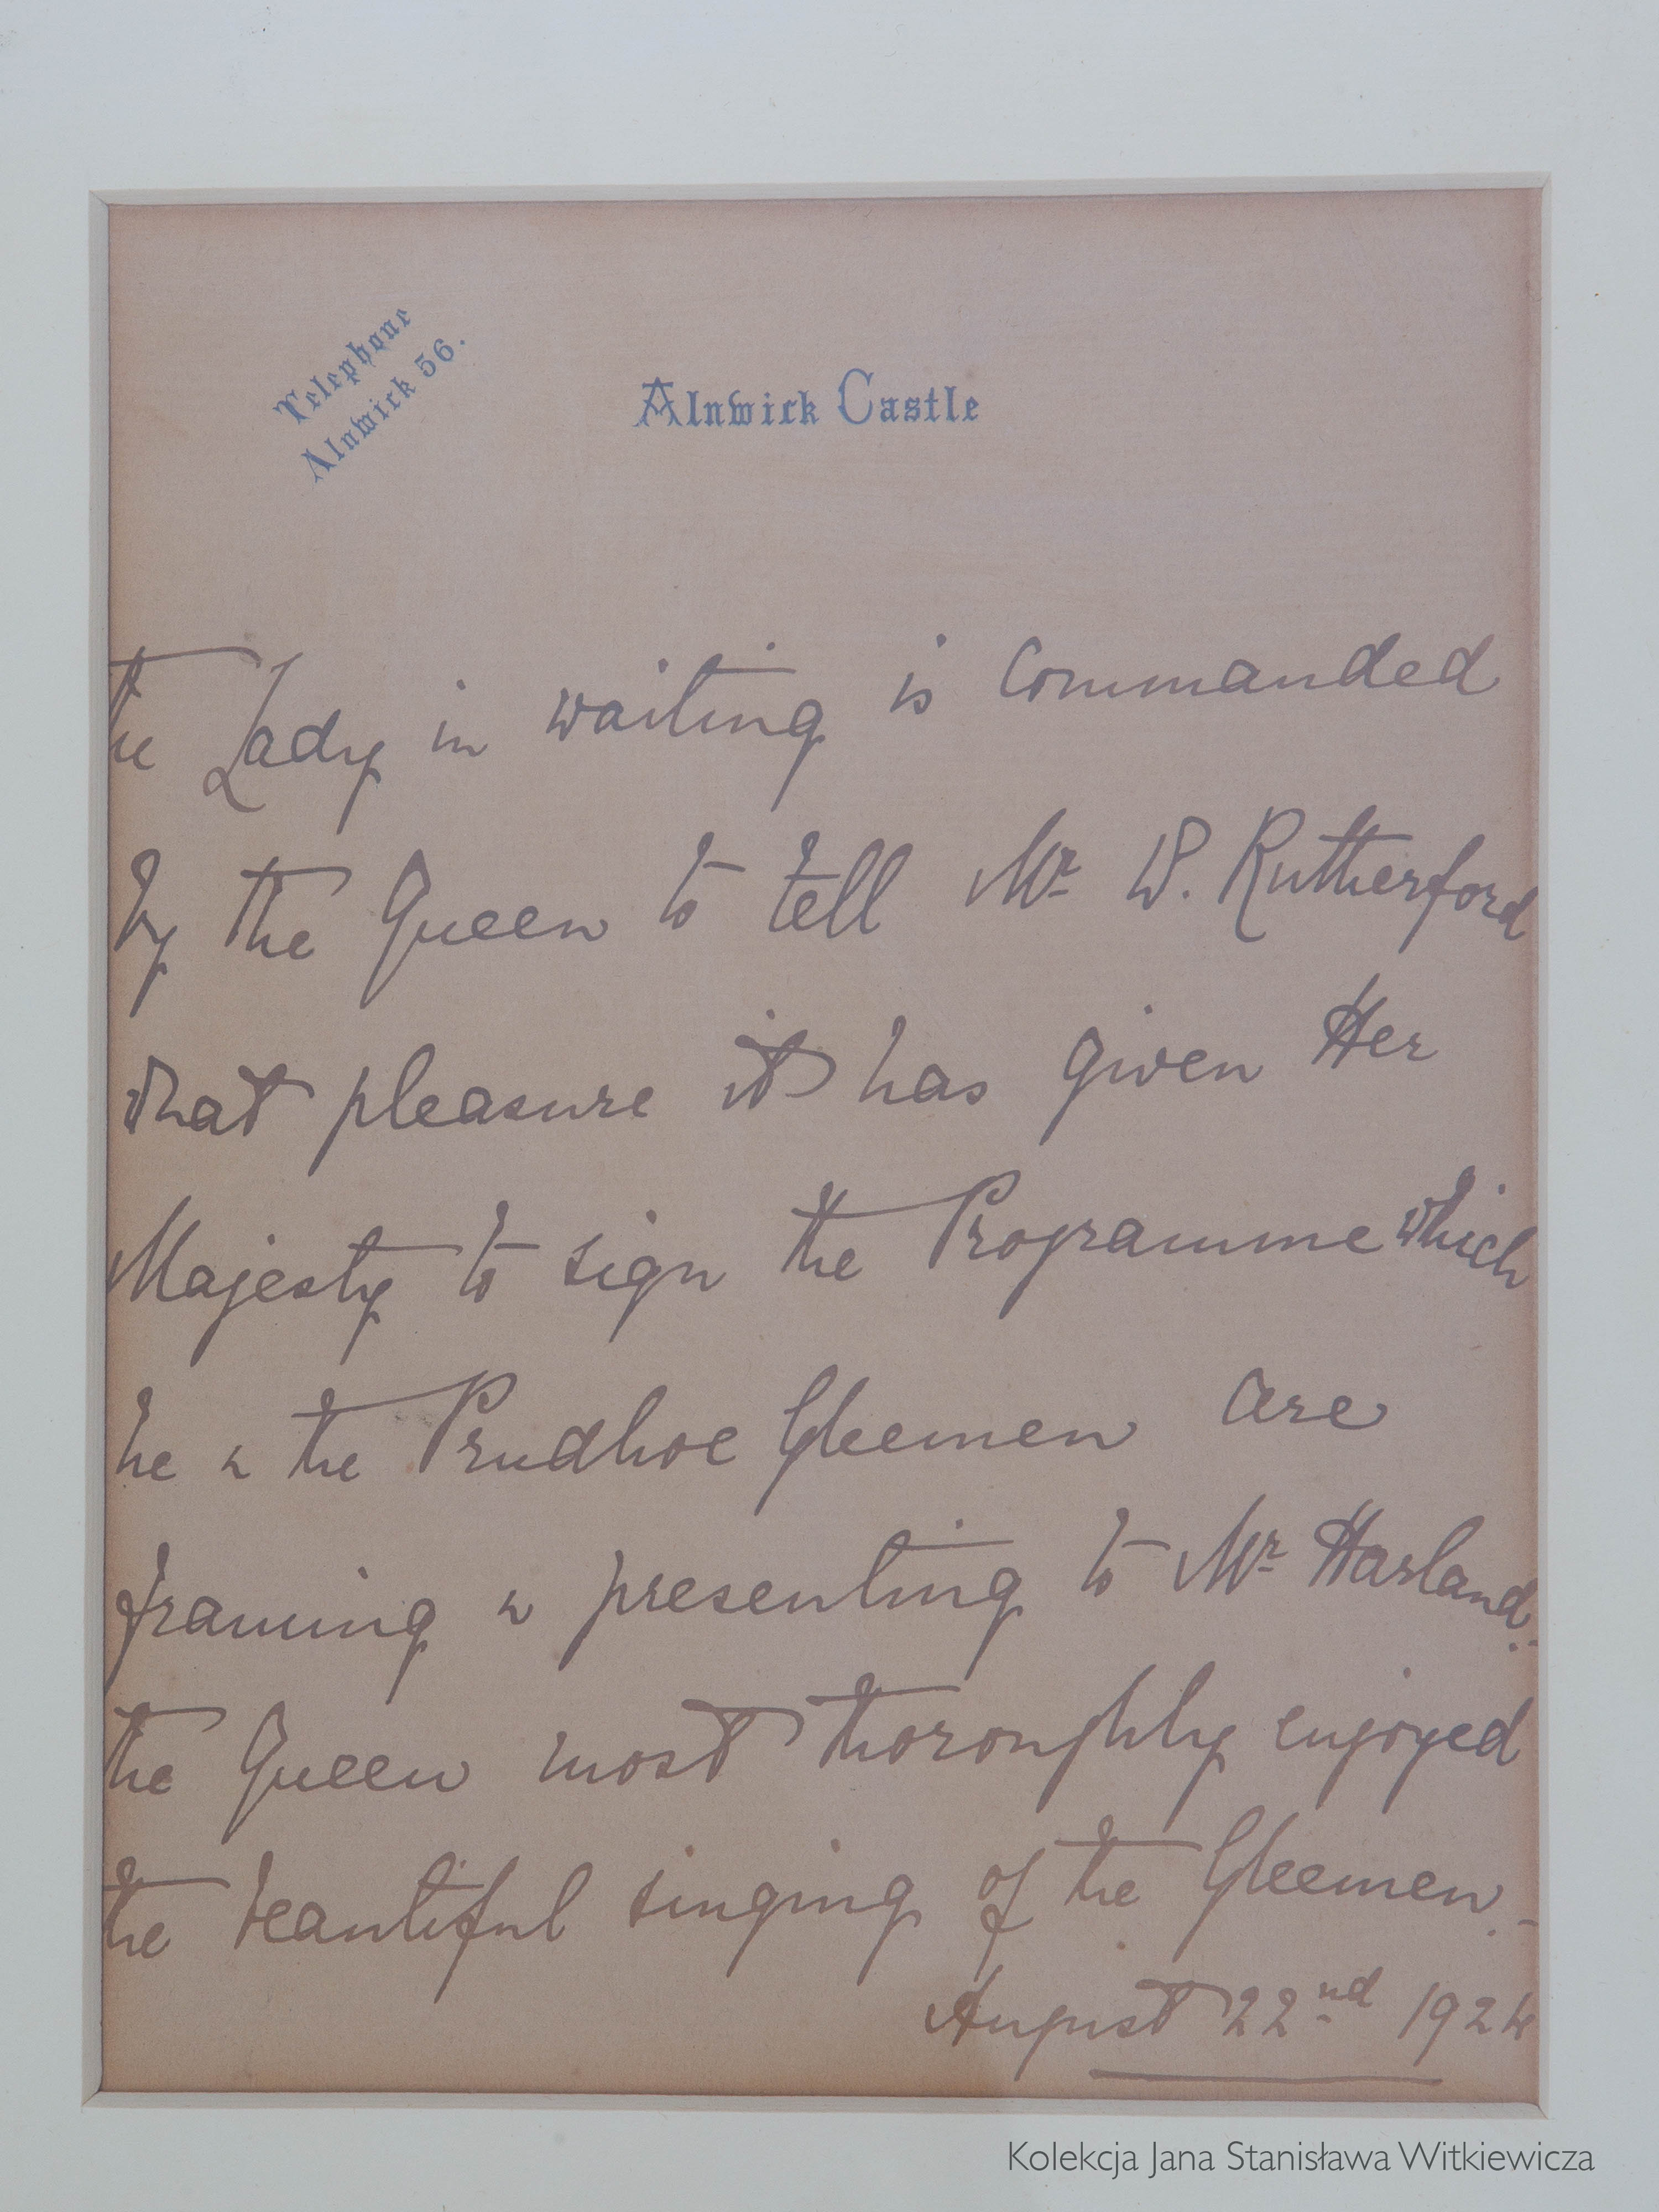 Telephone
Alnwick 56.
Alnwick Castle
the Lady in waiting is Commanded
by the Queen to tell Mr W. Rutherford
what pleasure it has given Her
Majesty to sign the Programme which
he & the Prudhoe Gleemen are
framing & presenting to Mr Harland.
the Queen most thoroughly enjoyed
the beautiful singing of the Gleemen. -
August 22nd 1924
Kolekcja Jana Stanisława Witkiewicza